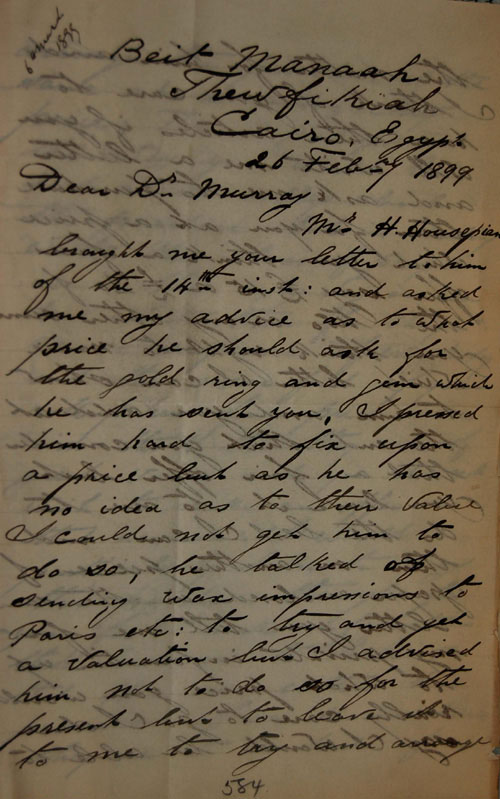 6 March
1899
Beit Manaah
Thewfikiah
Cairo, Egypt
26 Feb-y 1899
Dear Dr. Murray
Mr. H. Housepian
brought me your letter to him
of the 14th inst: and asked
me my advice as to what
price he should ask for
the gold ring and gem which
he has sent you, I pressed
him hard to fix upon
a price but as he has
no idea as to their value
I could not get him to
do so, he talked of
sending wax impressions to
Paris etc: to try and get
a valuation but I advised
him not to do so for the
present but to leave it
to me to try and arrange
584